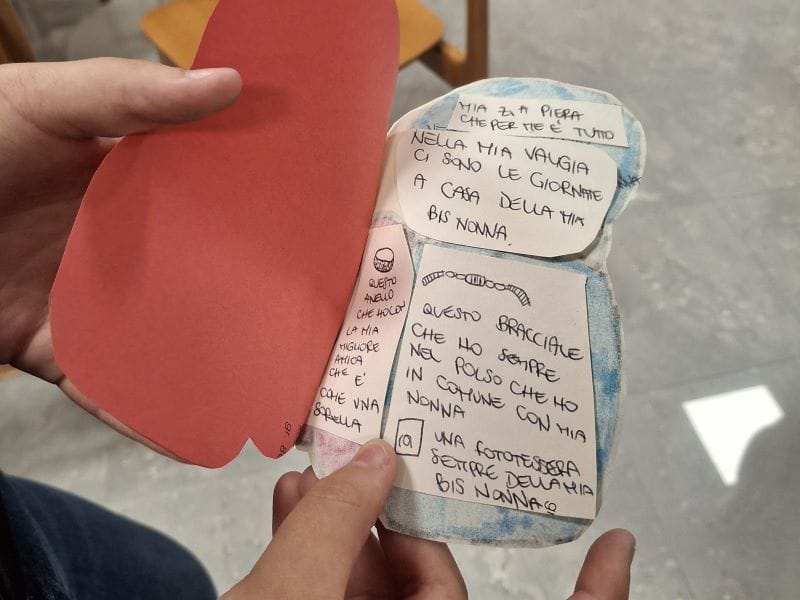 MIA ZIA PIERA
CHE PER ME È TUTTO
NELLA MIA VALIGIA
CI SONO LE GIORNATE
A CASA DELLA MIA
BIS NONNA.
QUESTO
ANELLO
CHE HO CON
LA MIA
MIGLIORE
AMICA
CHE È
COME UNA
SORELLA
QUESTO BRACCIALE
CHE HO SEMPRE
NEL POLSO CHE HO
IN COMUNE CON MIA
NONNA
UNA FOTOTESSERA
SEMPRE DELLA MIA
BIS NONNA